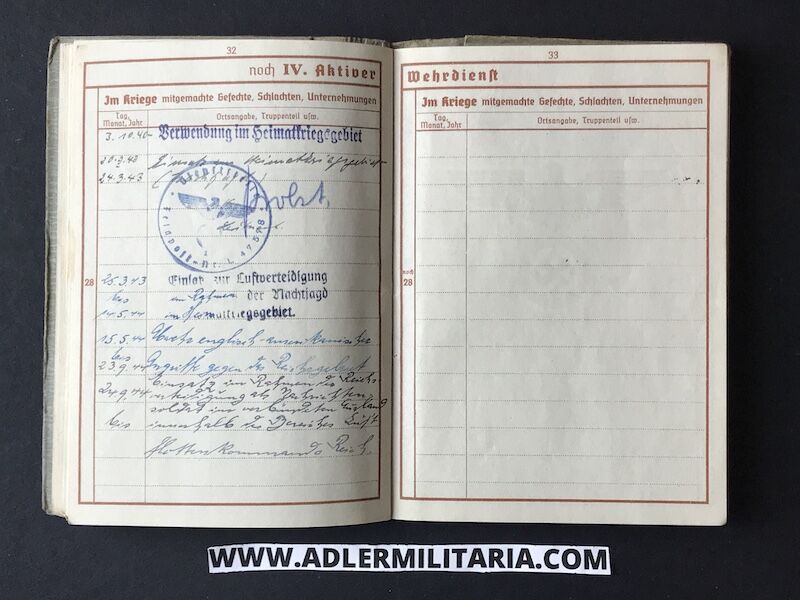 32
noch IV. Aktiver
Im Kriege mitgemachte Gefechte, Schlachten, Unternehmungen
Tag, Monat, Jahr
Ortsangabe, Truppenteil usw.
3.10.40 Verwendung im Heimatkriegsgebiet
Einsatz im Heimatkriegsgebiet
24.3.43
Dienststelle
Feldpost-Nr. L 47598
28
25.3.43 Einsatz zur Luftverteidigung
bis im Rahmen der Nachtjagd
14.5.44 im Heimatkriegsgebiet.
15.5.44 englisch-amerikanischer
bis
23.9.44 gegen das Reichsgebiet
24.9.44 Einsatz im Rahmen der Reichs-
verteidigung als Nachrichten-
soldat im
bis innerhalb des Bereiches Luft-
flottenkommando Reich.
33
Wehrdienst
Im Kriege mitgemachte Gefechte, Schlachten, Unternehmungen
Tag, Monat, Jahr
Ortsangabe, Truppenteil usw.
noch 28
WWW.ADLERMILITARIA.COM